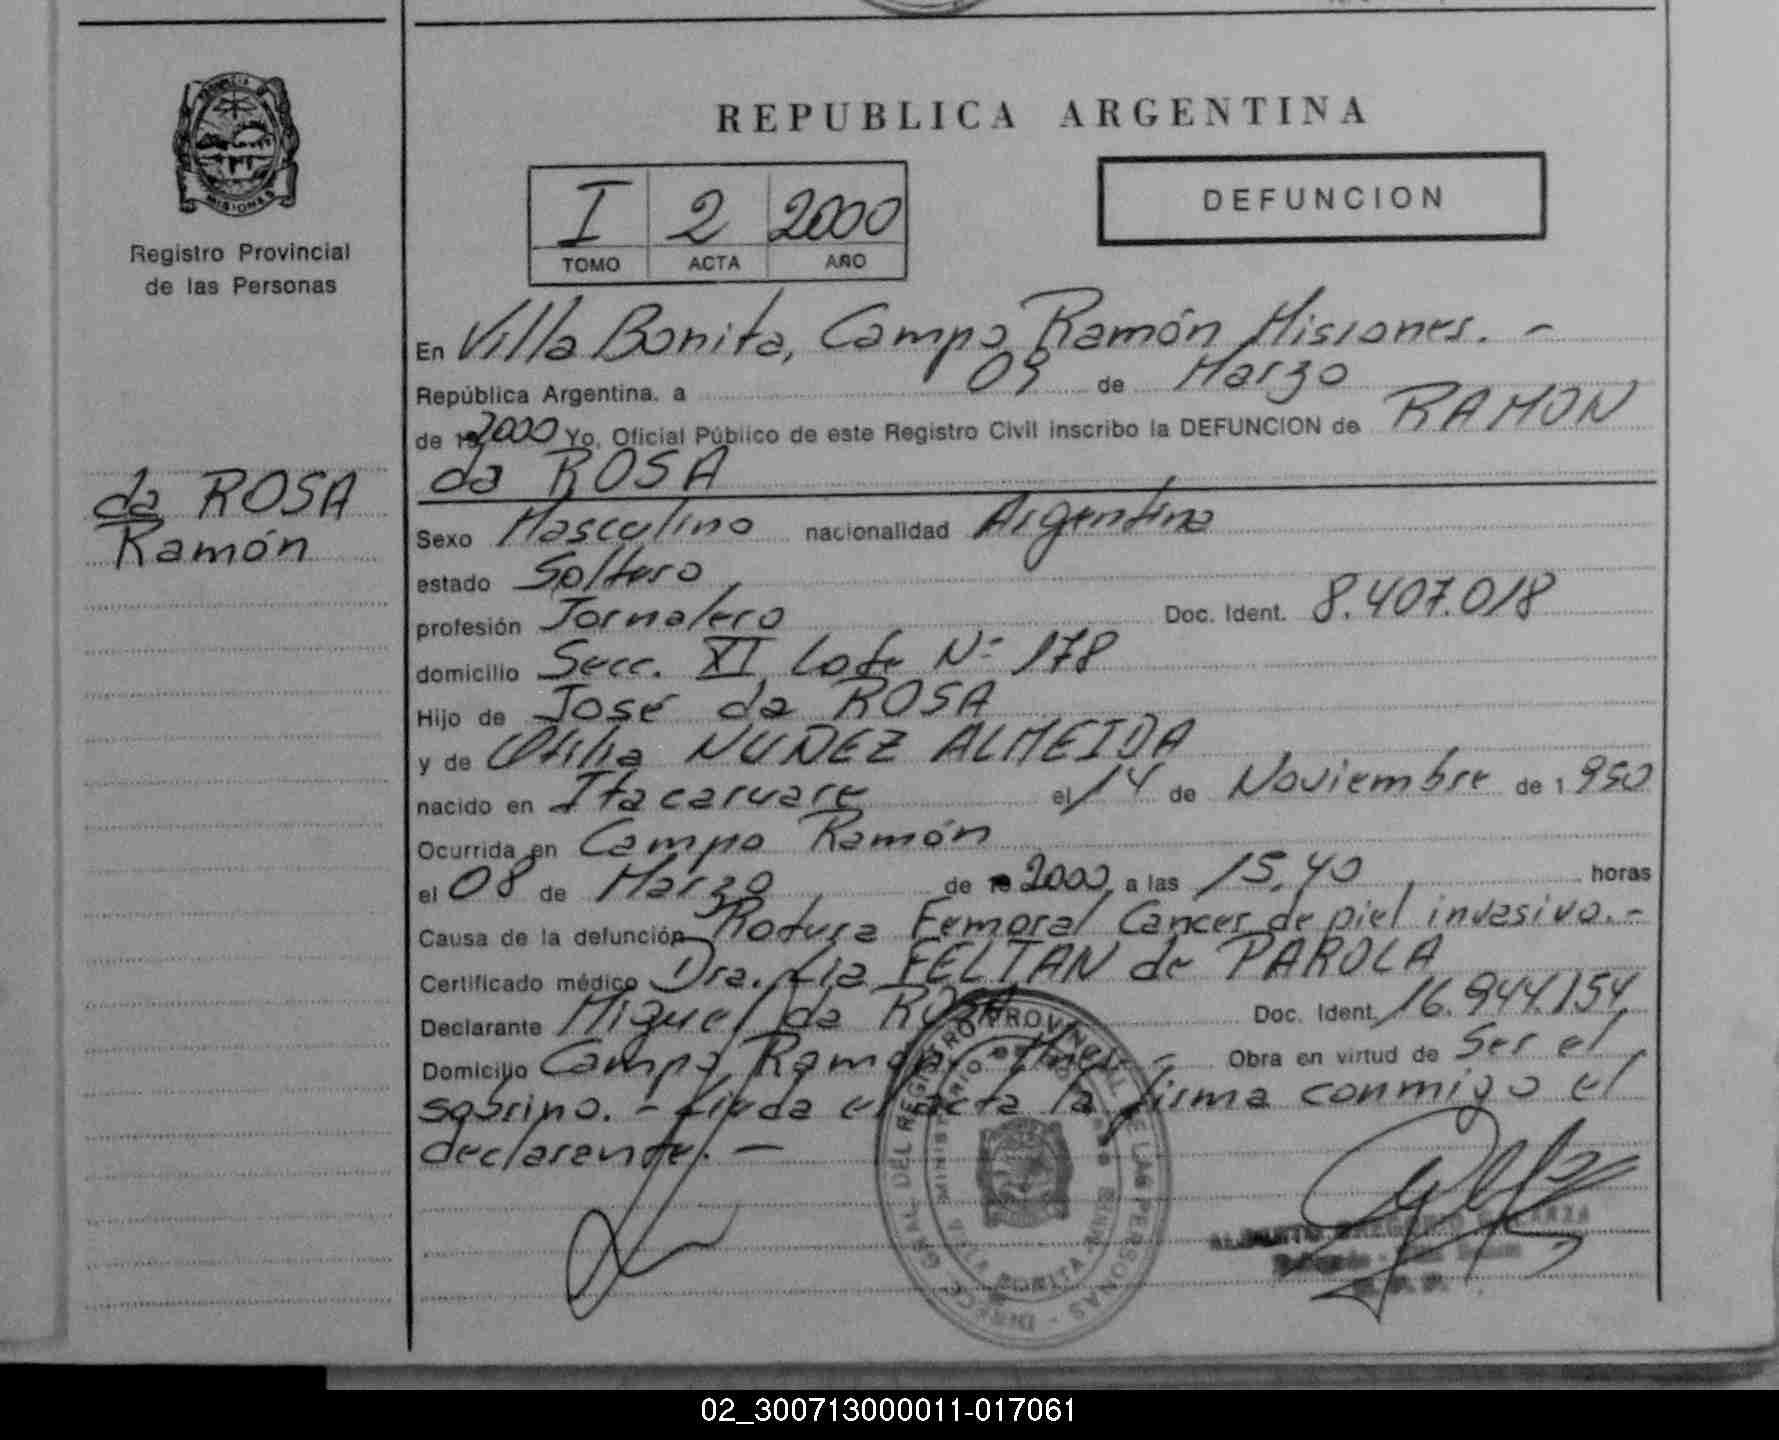 PROVINCIA DE
MISIONES
Registro Provincial
de las Personas
da ROSA
Ramón
REPUBLICA ARGENTINA
I 2 2000
TOMO ACTA AÑO
DEFUNCION
En Villa Bonita, Campo Ramón Misiones. -
República Argentina, a 09 de Marzo
de 2000 Yo, Oficial Público de este Registro Civil inscribo la DEFUNCION de RAMON
da ROSA
Sexo Masculino nacionalidad Argentina
estado Soltero
profesión Jornalero Doc. Ident. 8.407.018
domicilio Secc. XI Lote Nº 178
Hijo de José da ROSA
y de Otilia NUÑEZ ALMEIDA
nacido en Itacaruare el 14 de Noviembre de 1950
Ocurrida en Campo Ramón
el 08 de Marzo de 2000 a las 15,40 horas
Causa de la defunción Rotura Femoral Cancer de piel invasivo.-
Certificado médico Dra. Lia FELTAN de PAROLA
Declarante Miguel da ROSA Doc. Ident. 16.944.154
Domicilio Campo Ramón Mnes. - Obra en virtud de Ser el
sobrino. - Leída el acta la firma conmigo el
declarante. -
DIRECC. GRAL. DEL REGISTRO PROVINCIAL DE LAS PERSONAS
MINISTERIO DE GOBIERNO
VILLA BONITA
ALBERTO GREGORIO
02_300713000011-017061